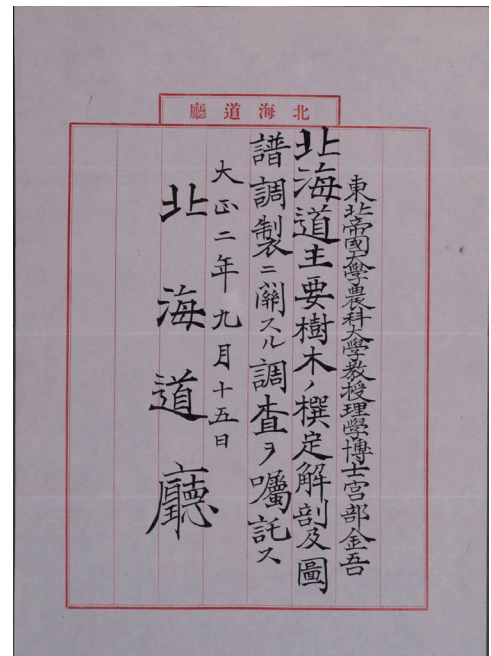 北海道廳
東北帝國大學農科大學教授理學博士宮部金吾
北海道主要樹木ノ撰定解剖及圖
譜調製ニ關スル調査ヲ囑託ス
大正二年九月十五日
北海道廳